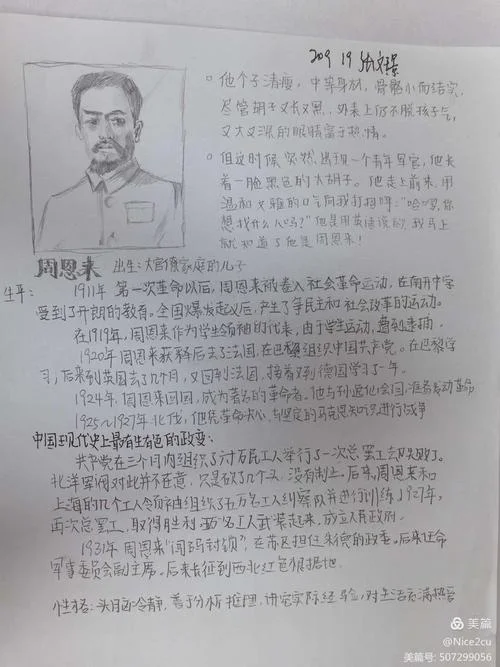 209 19 张文
○ 他个子清瘦,中等身材,骨骼小而结实
尽管胡子又长又黑,外表上仍不脱孩子气,
又大又深的眼睛富于热情。
○ 但这时候突然出现一个青年军官,他长
着一脸黑色的大胡子。他走上前来,用
温和文雅的口气向我打招呼:“哈啰,你
想找什么人吗?”他是用英语说的,我马上
就知道了他是周恩来!
周恩来 出生:大官僚家庭的儿子
生平:
1911年 第一次革命以后,周恩来被卷入社会革命运动,在南开中学
受到了开朗的教育。全国爆发起义后,产生了争民主和社会改革的运动。
在1919年,周恩来作为学生领袖的代表,由于学生运动,遭到逮捕
1920年周恩来获释后去了法国,在巴黎组织中国共产党。在巴黎学
习,后来到英国去了几个月,又回到法国,接着又到德国学习了一年。
1924年,周恩来回国,成为著名的革命者。他与孙逸仙会面,准备发动革命
1925~1927年北伐,他凭革命决心、与坚定的马克思知识进行战争
中国现代史上最有生有色的政变:
共产党在三个月内组织了六十万民工人举行了一次总罢工会失败了。
北洋军阀对此并不在意,只是砍了几个头,没有制止。后来,周恩来和
上海的几个工人领袖组织了五万名工人纠察队并进行训练,1927年,
再次总罢工,取得胜利 名工人武装起来,成立人民政府。
1931年 周恩来“闯码封锁”,在苏区担任朱德的政委。后来任命
军事委员会副主席。后来长征到西北红色根据地
性格:头脑冷静,善于分析推理,讲究实际经验,对生活充满热爱
美篇
@Nice2cu
美篇号: 507299056